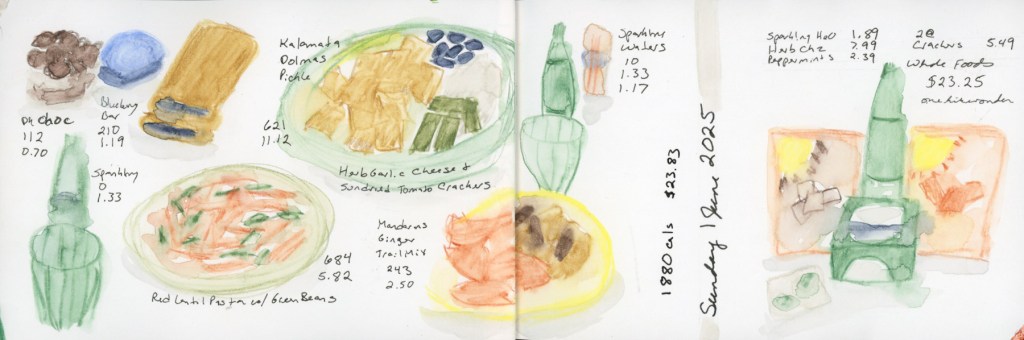 DK choc
112
0.70
Blueberry
Bar
210
1.19
Sparkling
0
1.33
Kalamata
Dolmas
Pickle
621
11.12
Herb Garlic Cheese &
Sundried Tomato Crackers
684
5.82
Red Lentil Pasta w/ Green Beans
Mandarins
Ginger
Trail Mix
243
2.50
Sparkling
Waters
10
1.33
1.17
1880 cals $23.83
Sunday 1 June 2025
Sparkling H2O 1.89
Herb Chz 7.99
Peppermints 2.39
2@
Crackers 5.49
Whole Foods
$23.25
one hit wonder